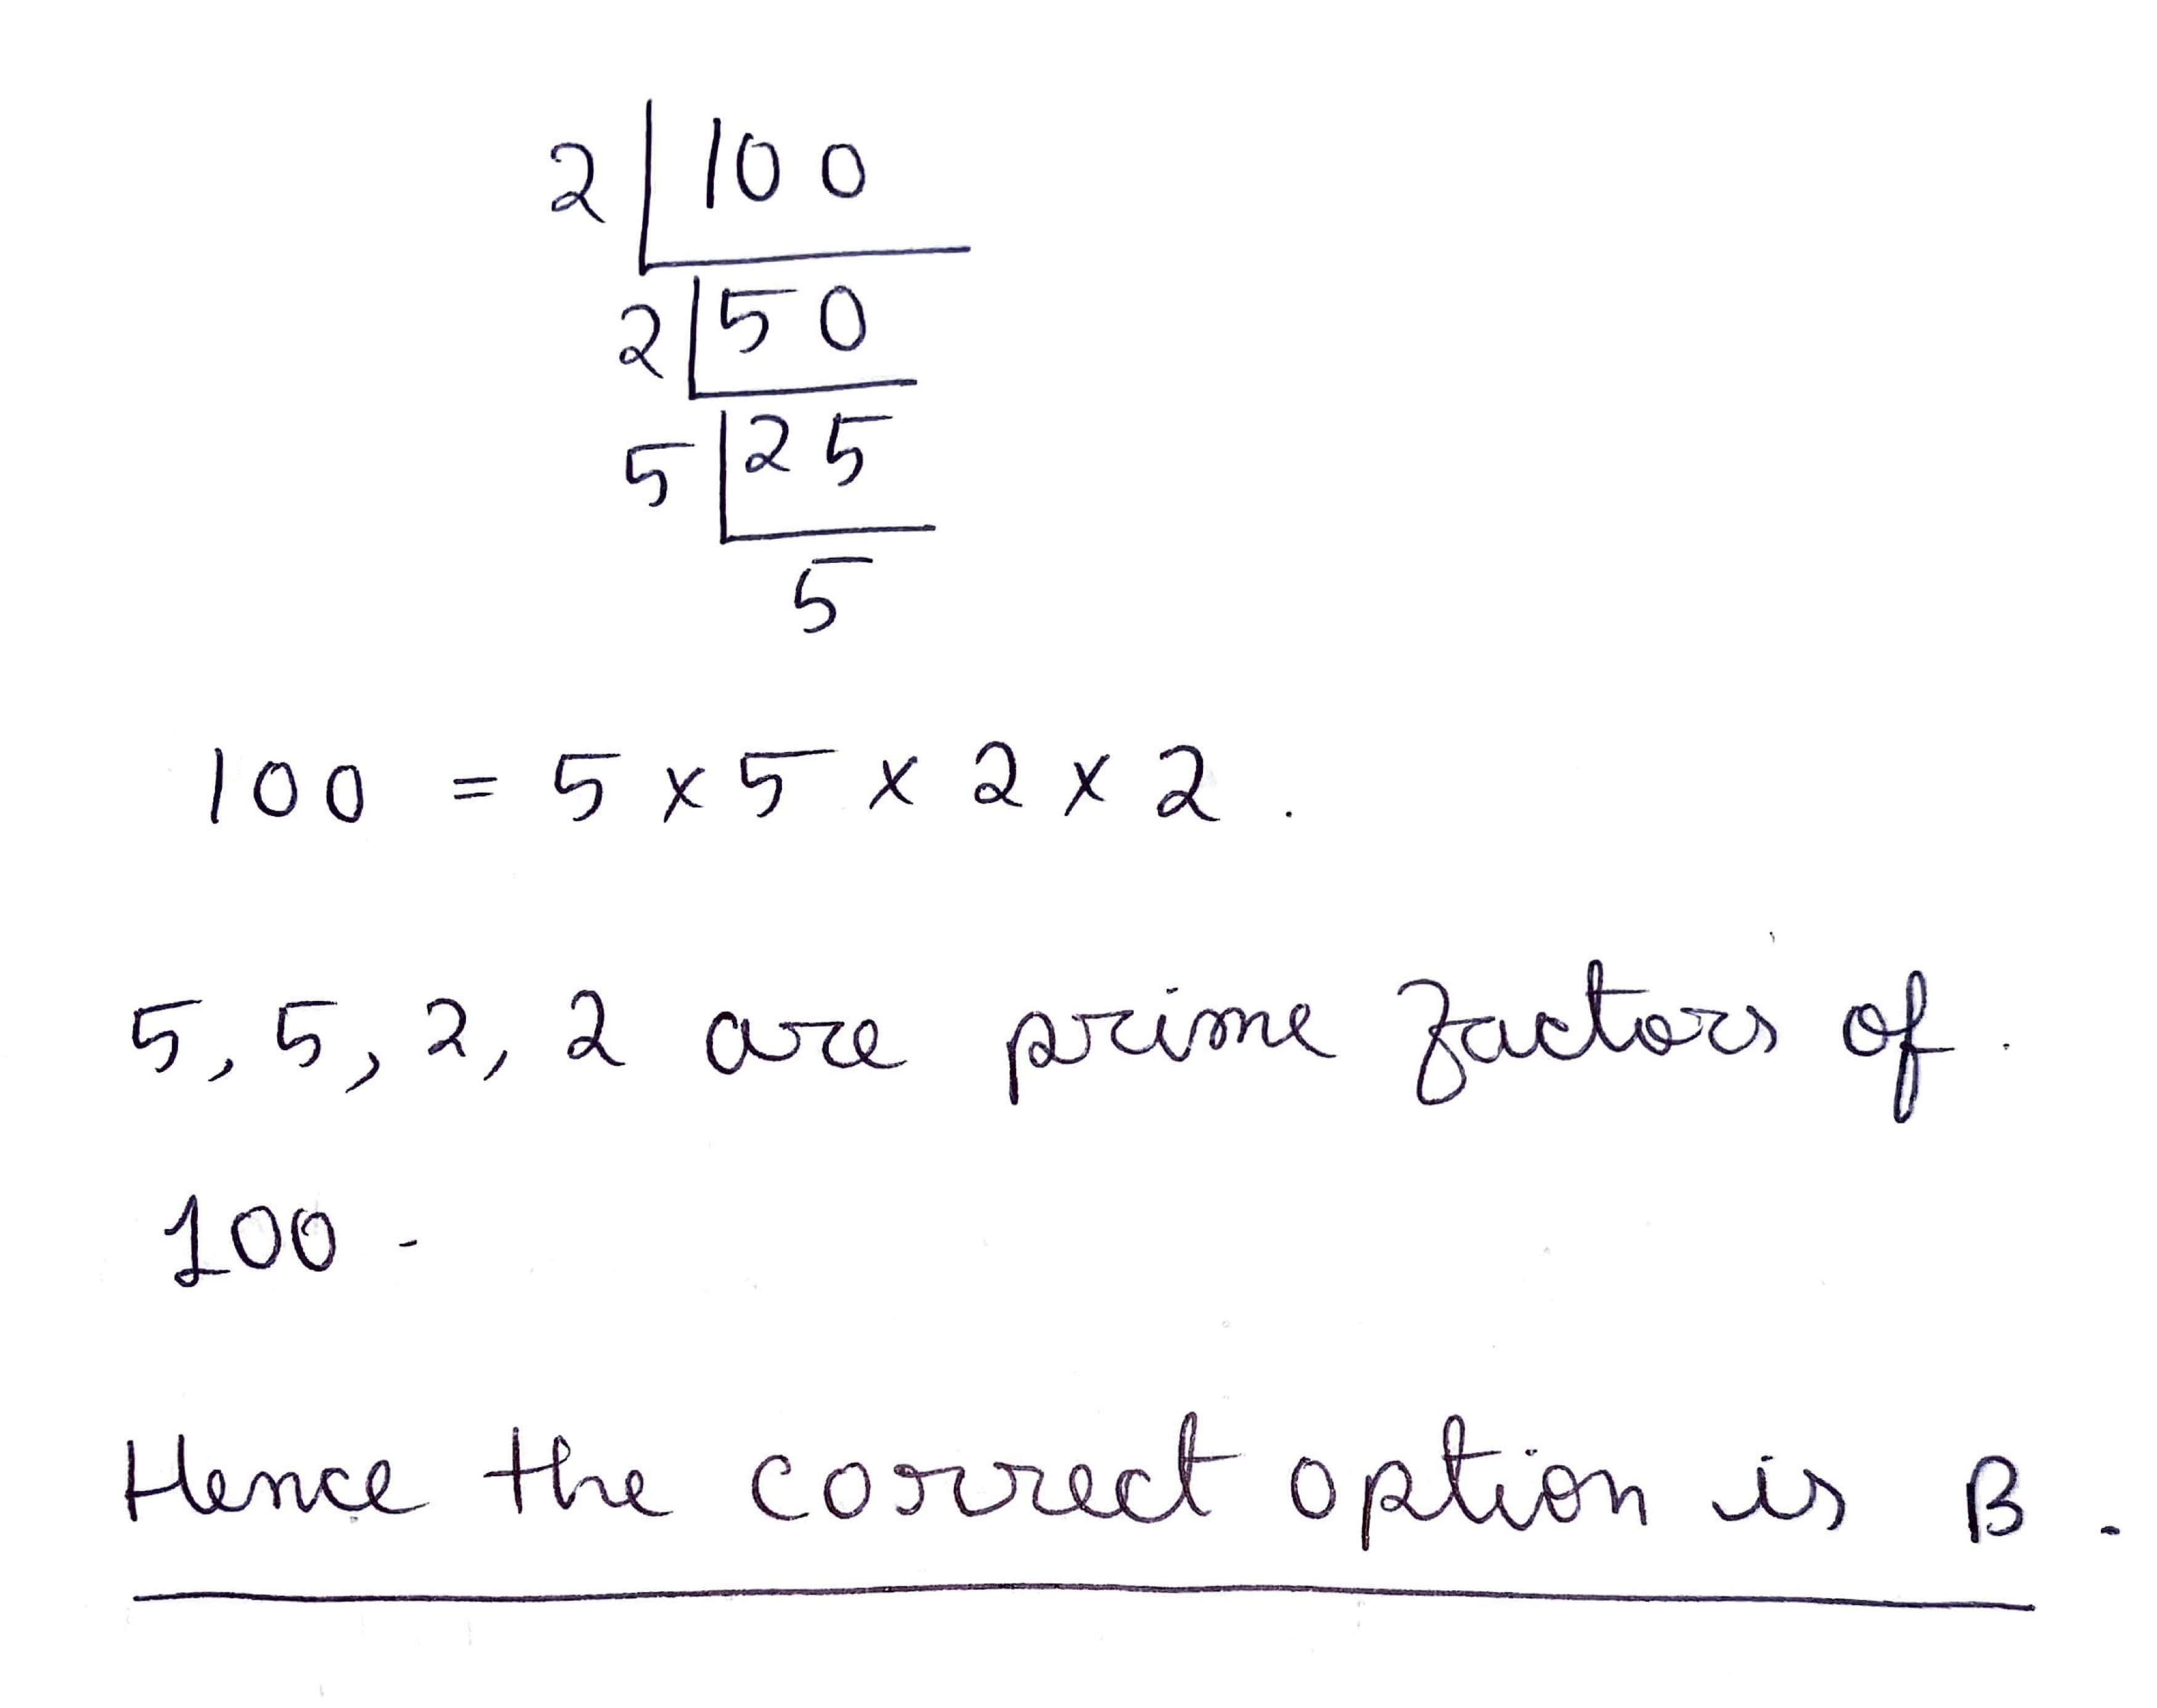 2 | 100
2 | 50
5 | 25
5
100 = 5 x 5 x 2 x 2 .
5, 5, 2, 2 are prime factors of .
100 -
Hence the correct option is B .